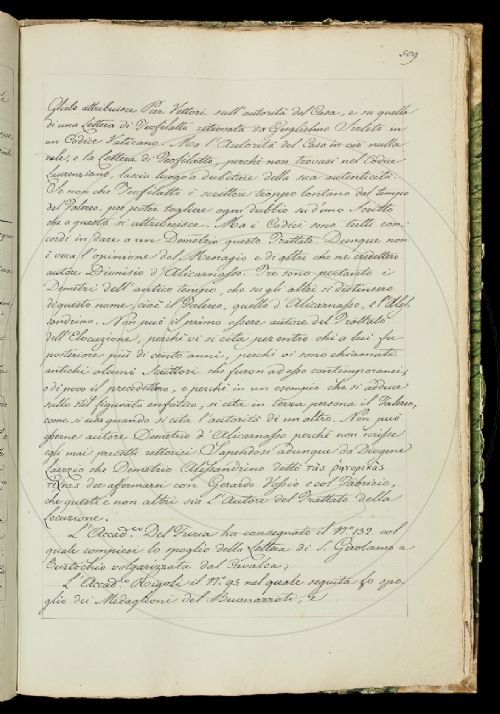 509
Glielo attribuisce Pier Vettori sull'autorità del Casa, e su quella
di una Lettera di Teofilatto ritrovata da Guglielmo Sirleto in
un Codice Vaticano. Ma l'Autorità del Casa in ciò nulla
vale, e la Lettera di Teofilatto, perchè non trovasi nel Codice
Laurenziano, lascia luogo a dubitare della sua autenticità.
Se non che Teofilatto è scrittore troppo lontano dal tempo
del Falereo, per poter togliere ogni dubbio su d'uno Scritto
che a questo si attribuisce. Ma i Codici sono tutti con-
cordi in dare a un Demetrio questo Trattato. Dunque non
è vera l'opinione del Menagio e di altri che ne credettero
autore Dionisio d'Alicarnasso. Tre sono pertanto i
Demetri dell'antico tempo, che su gli altri si distinsero
di questo nome, cioè il Falereo, quello d'Alicarnasso, e l'Ales-
sandrino. Non può il primo essere autore del Trattato
dell'Elocuzione, perchè vi si cita per entro chi a lui fu
posteriore più di cento anni, perchè vi sono chiamati
antichi alcuni Scrittori che furon ad esso contemporanei,
o di poco il precedettero, e perchè in un esempio che si adduce
sullo stil figurato enfatico, si cita in terza persona il Falereo,
come si usa quando si cita l'autorità di un altro. Non può
esserne autore Demetrio d'Alicarnasso perchè non scrisse
egli mai precetti rettorici. Sapendosi adunque da Diogene
Laerzio che Demetrio Alessandrino dettò τὰς ρητορικὰς
τέχνας dee affermarsi con Gerardo Vossio e col Fabricio,
che questi e non altri sia l'Autore del Trattato della
locuzione.
L'Accad.co Del Furia ha consegnato il N.o 132 col
quale compiesi lo spoglio della Lettera di S. Girolamo a
Eustochio volgarizzata dal Cavalca;
L'Accad.co Rigoli il N.o 95 nel quale seguita lo spo-
glio dei Medaglioni del Buonarroti, e